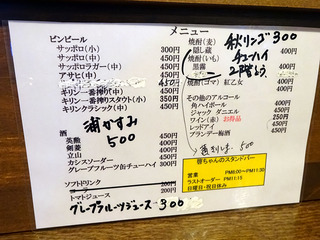 メニュー
ビンビール
サッポロ(小) 300円
サッポロ(中) 450円
サッポロラガー(中) 450円
アサヒ(中) 450
キリン一番搾り(中) 450円
キリン一番搾りスタウト(小) 350円
キリンクラシック(中) 450円
浦かすみ 500
酒
菊勢
剣菱 450円
立山 450円
カシスソーダー 350円
グレープフルーツ缶チューハイ 300円
ソフトドリンク 200円
トマトジュース 200円
グレープフルーツジュース 300
焼酎(麦) 秋リンゴ 300
隠し蔵 400円
焼酎(いも) チューハイ
黒霧 400円
二階堂
焼酎(ゴマ) 紅乙女 400円
その他のアルコール
角ハイボール 400円
ジャック ダニエル 400円
ワイン(赤) お得品 200円
レッドアイ 450円
ブランデー梅酒 400円
500
勝ちゃんのスタンドバー
営業 PM6:00〜PM11:30
ラストオーダー PM11:15
日曜日・祝日休み